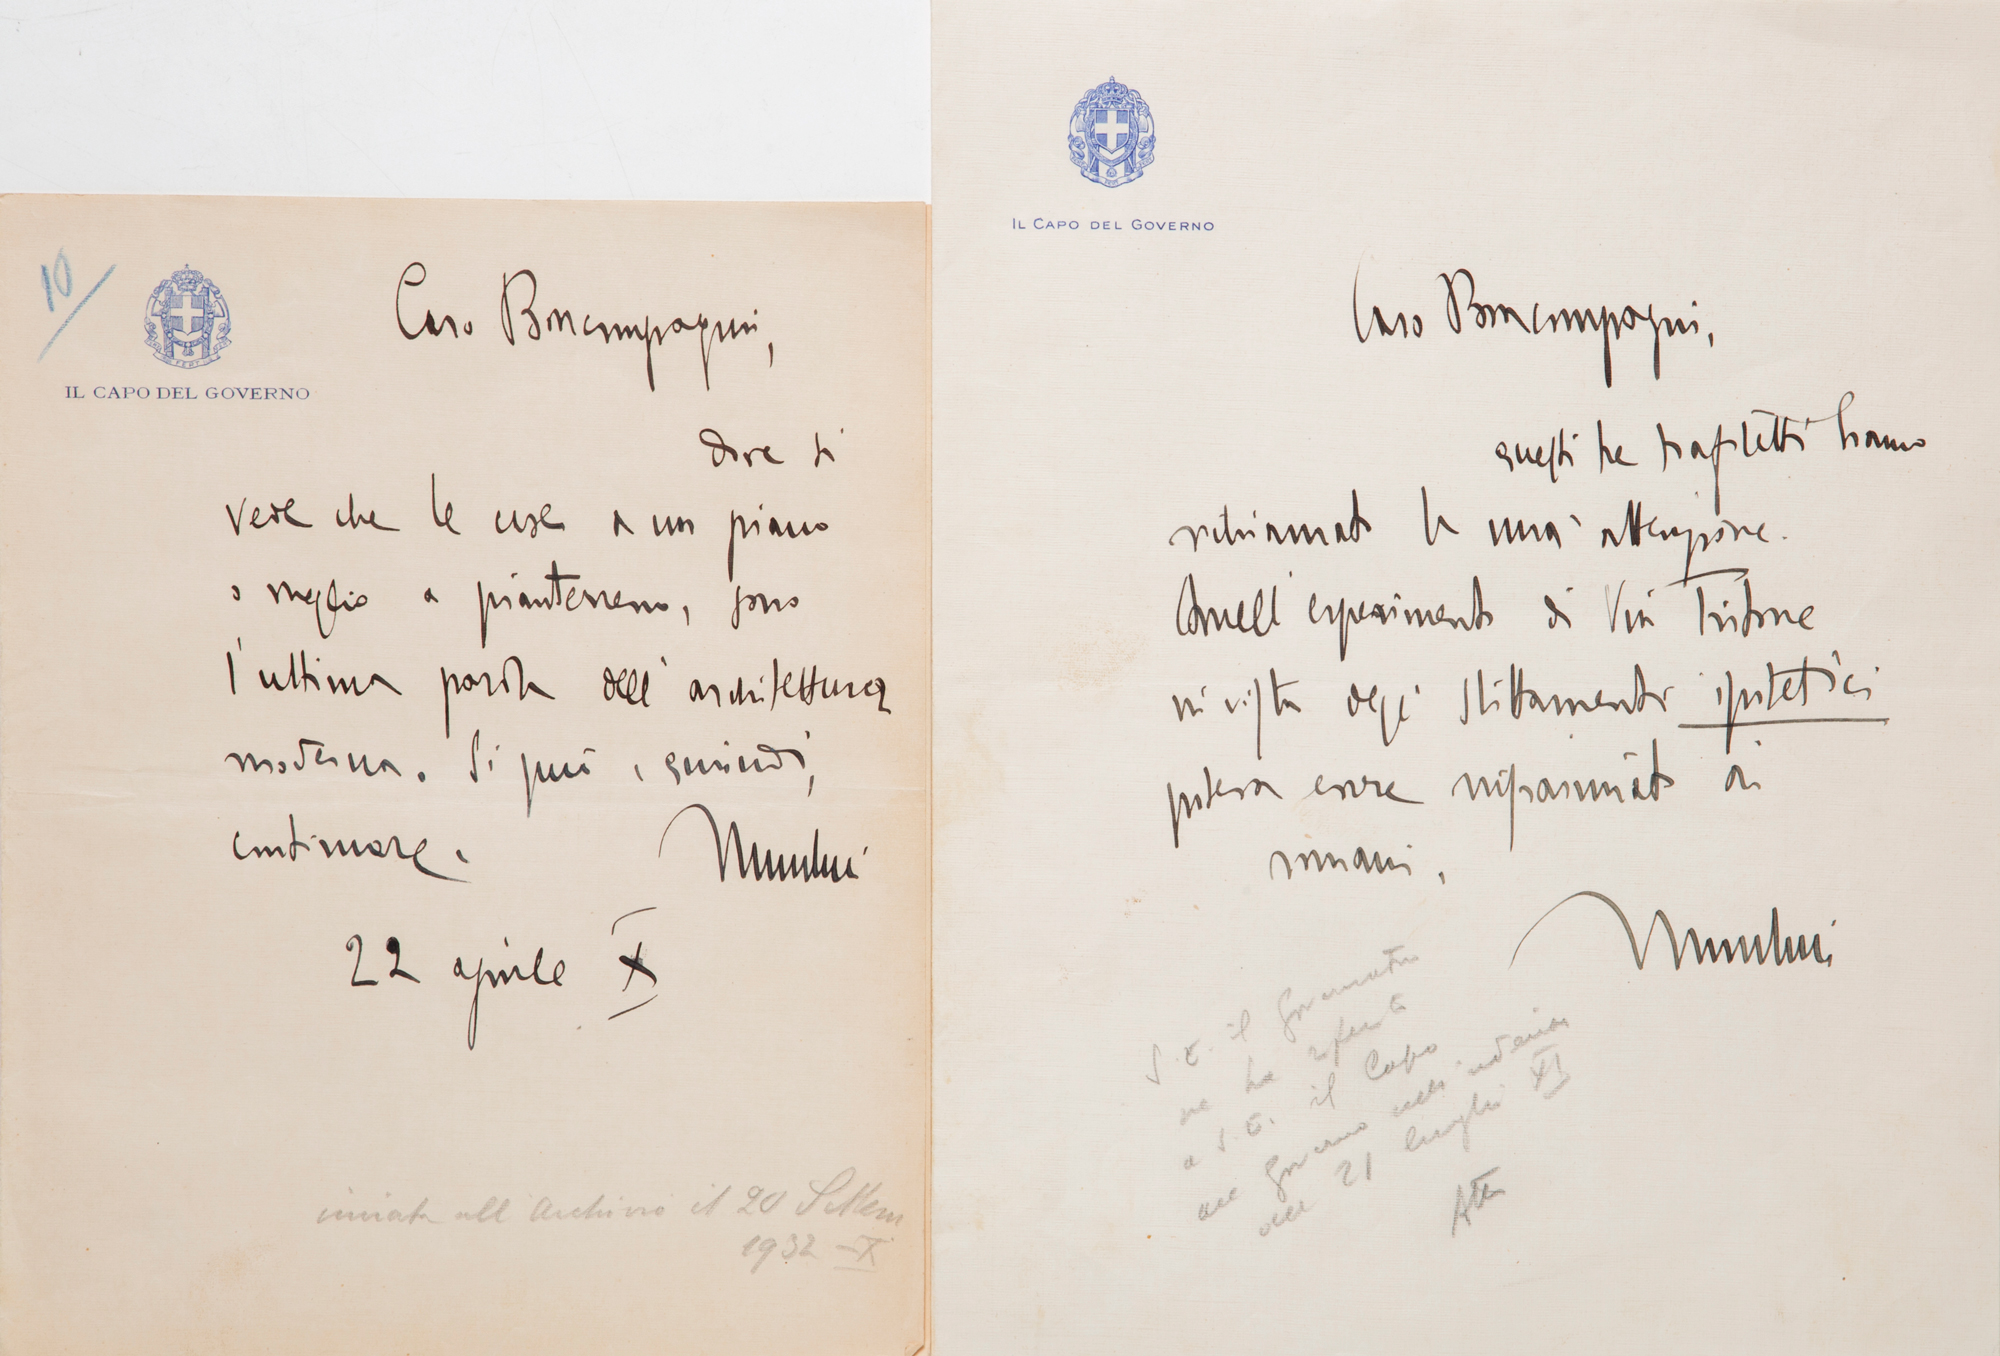 10
IL CAPO DEL GOVERNO
Caro Boncompagni,
dove si
vede che le case a un piano
o meglio a pianterreno, sono
l'ultima parola dell'architettura
moderna. Si può, quindi,
continuare.
Mussolini
22 aprile X
inviata all'Archivio il 20 Settem
1932 - X
IL CAPO DEL GOVERNO
Caro Boncompagni,
questi tre trafiletti hanno
richiamato la mia attenzione.
Quell'esperimento di Via Tritone
in vista degli slittamenti ipotetici
poteva essere risparmiato ai
romani.
Mussolini
S.E. il Governatore
ne ha riferito
a S.E. il Capo
del Governo nell'udienza
del 21 luglio XI